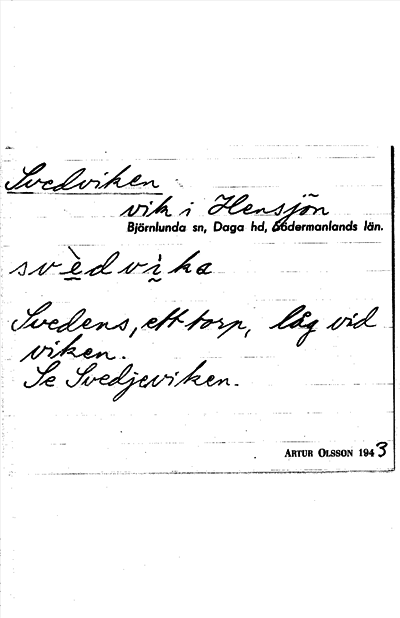 Svedviken
vik i Hensjön
Björnlunda sn, Daga hd, Södermanlands län.
svèdvika
Svedens, ett torp, låg vid
viken.
Se Svedjeviken.
ARTUR OLSSON 1943